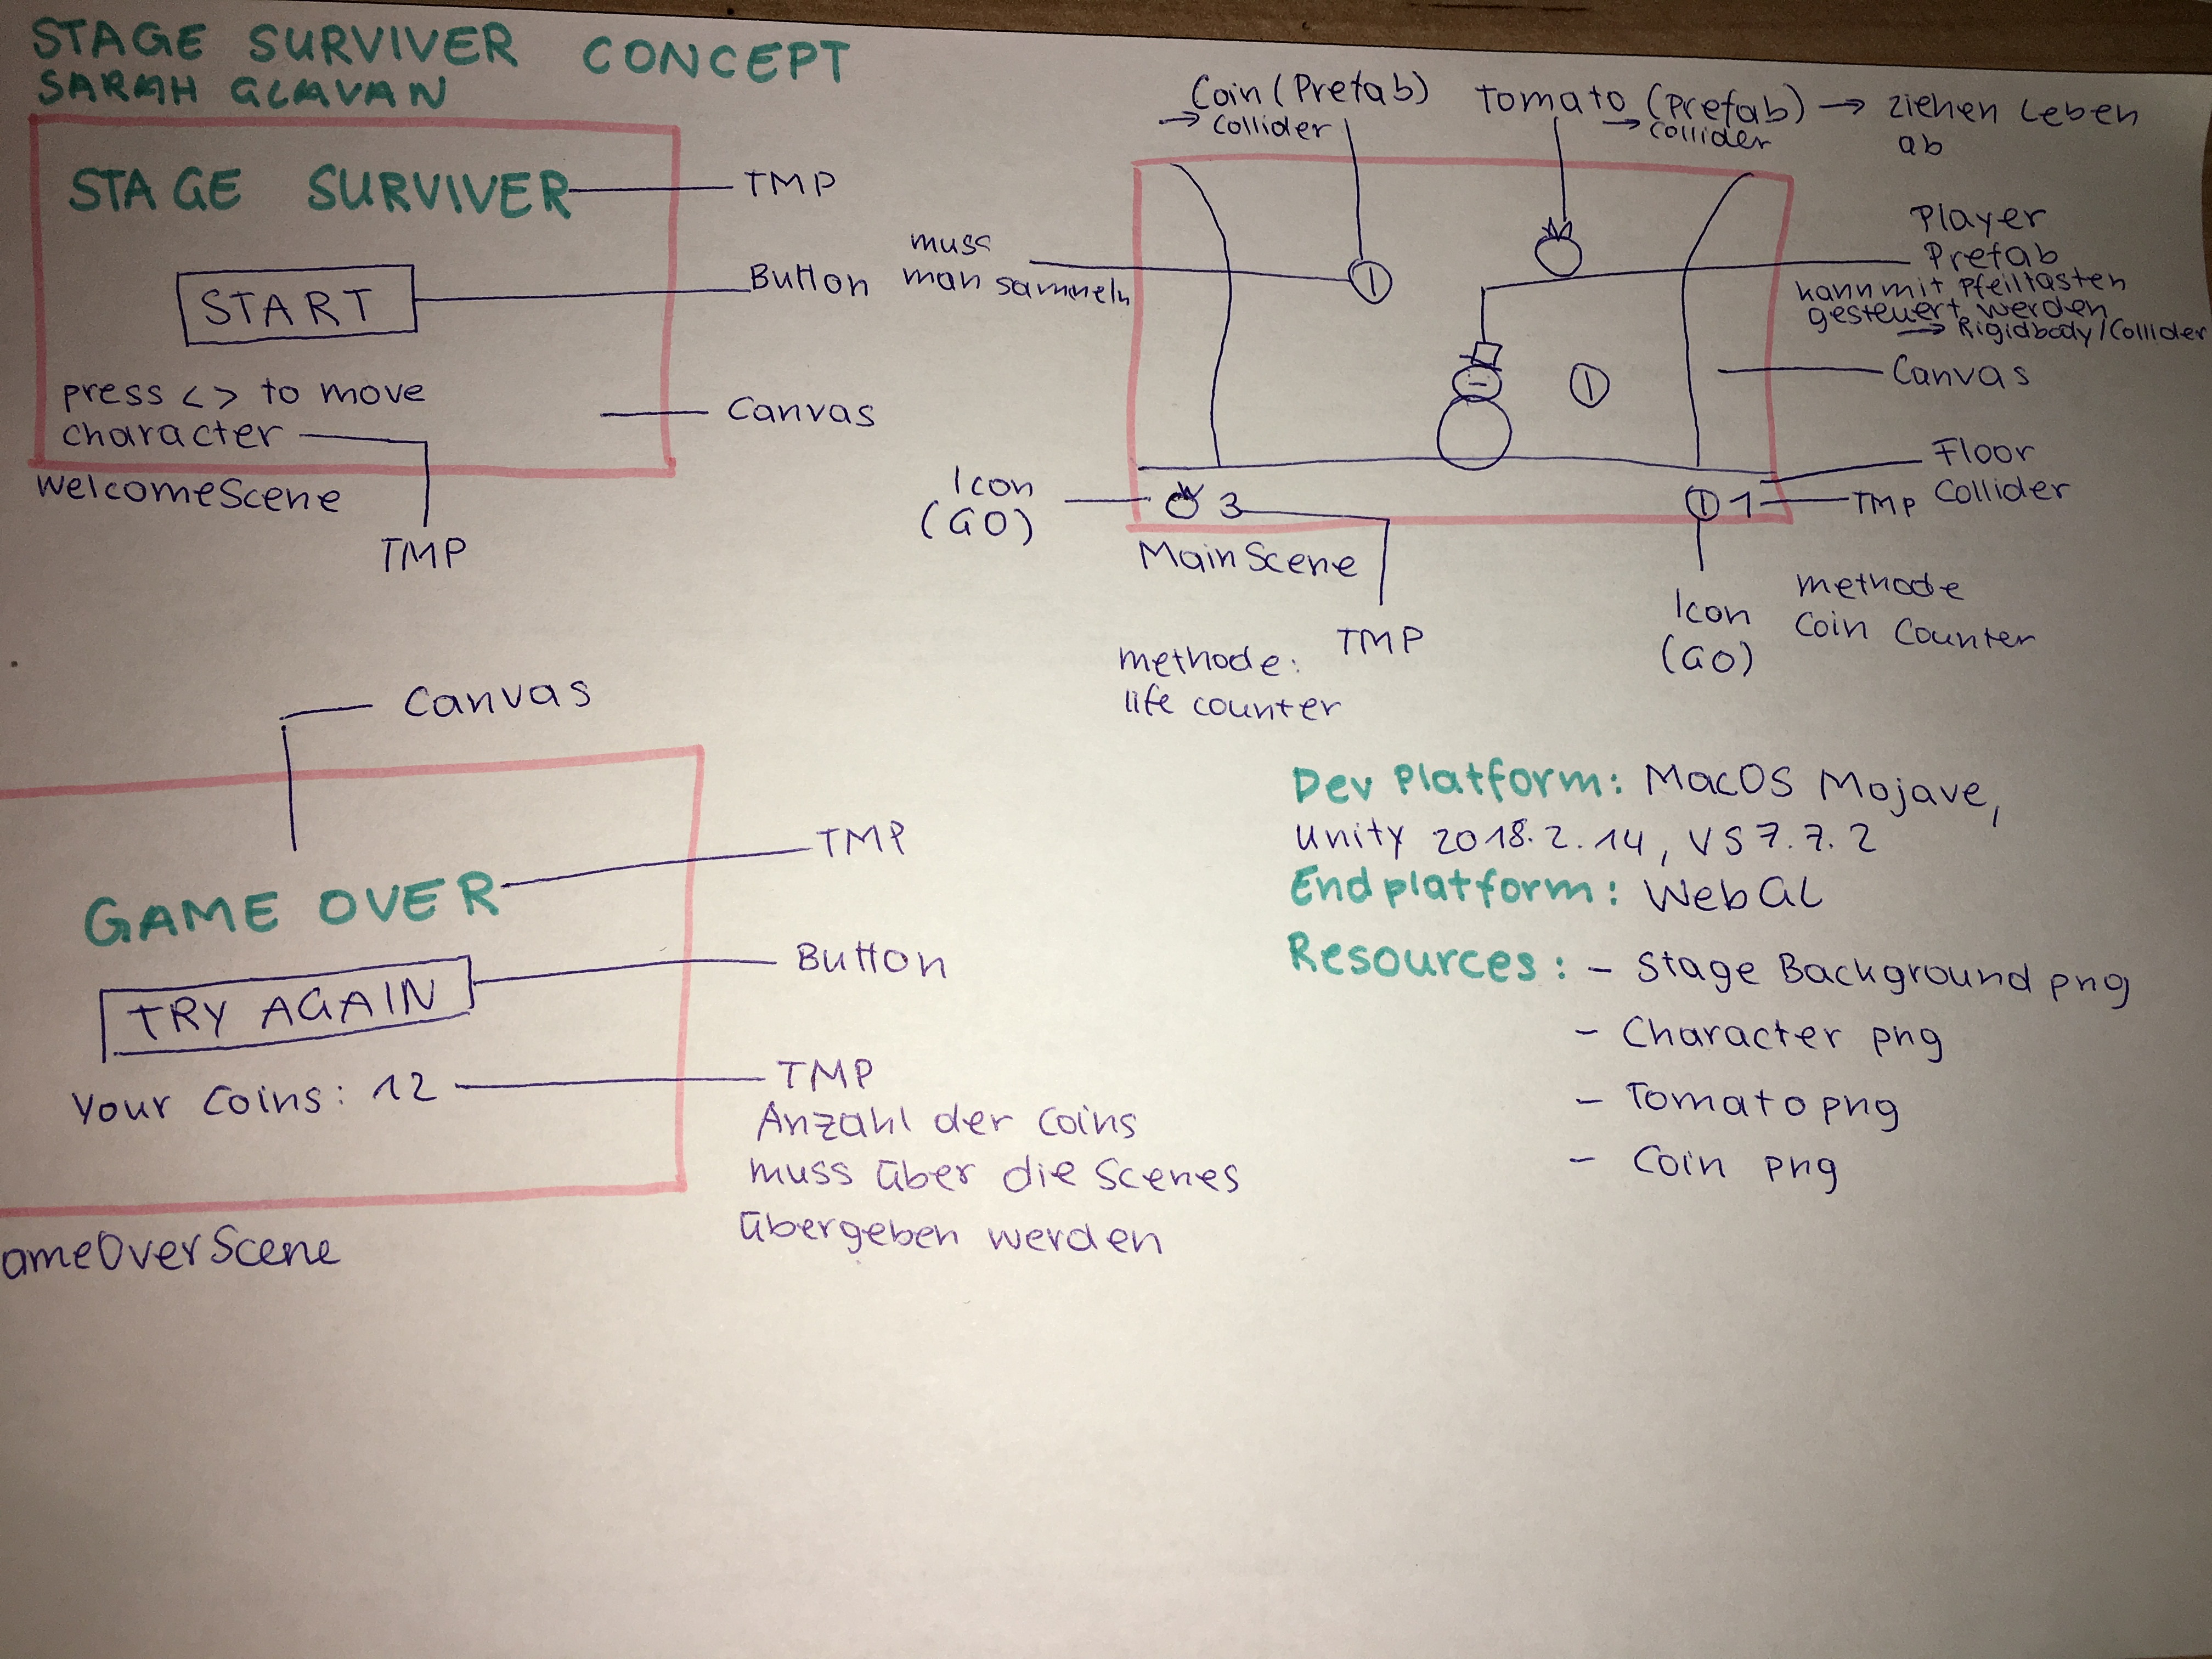 STAGE SURVIVER CONCEPT
SARAH GLAVAN
STAGE SURVIVER
TMP
START
Button
press < > to move
character
Canvas
WelcomeScene
TMP
Coin (Prefab)
→ Collider
Tomato (Prefab) → ziehen Leben
→ Collider
ab
muss
man sammeln
Player
Prefab
kann mit Pfeiltasten
gesteuert werden
→ Rigidbody/Collider
Canvas
Floor
Collider
Icon
(GO)
3
1
TMP
MainScene
TMP
methode:
life counter
Icon
(GO)
methode
Coin Counter
Canvas
GAME OVER
TMP
TRY AGAIN
Button
Your Coins: 12
TMP
Anzahl der Coins
muss über die Scenes
übergeben werden
ameOverScene
Dev Platform: MacOS Mojave,
Unity 2018.2.14, VS 7.7.2
Endplatform: WebGL
Resources: - Stage Background png
- Character png
- Tomato png
- Coin png